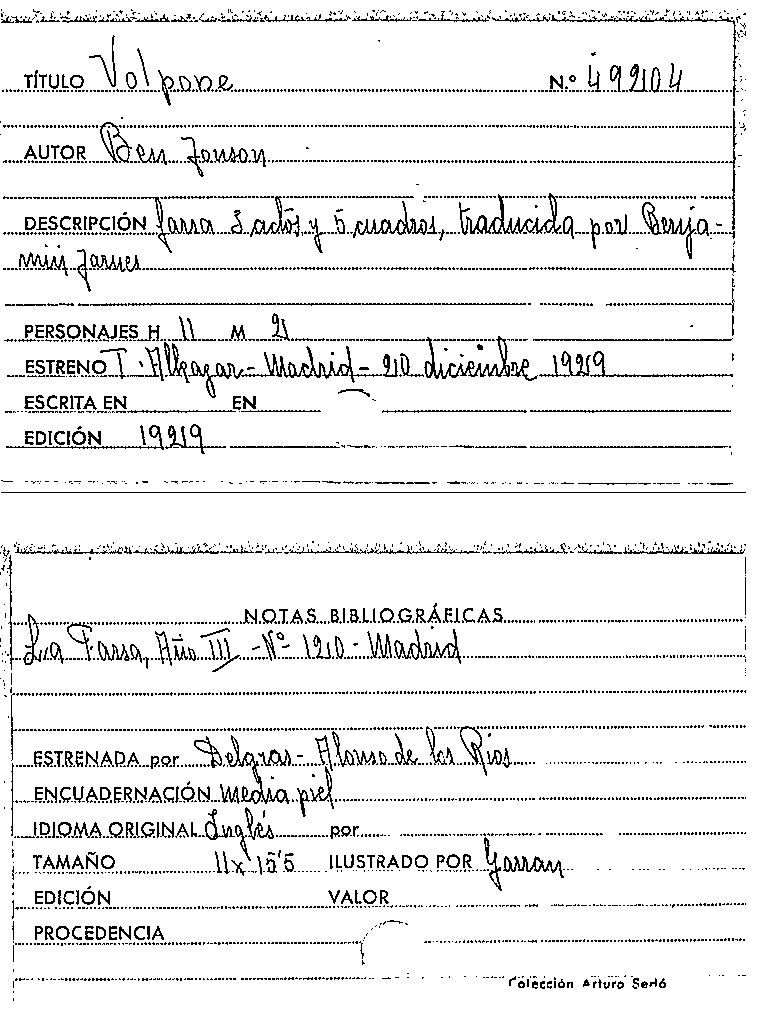 TÍTULO Volpone N.º 49204
AUTOR Ben Jonson
DESCRIPCIÓN farsa 3 actos y 5 cuadros, traducida por Benja-
mín Jarnes
PERSONAJES H 11 M 2
ESTRENO T. Alkazar - Madrid - 20 diciembre 1929
ESCRITA EN EN
EDICIÓN 1929
NOTAS BIBLIOGRÁFICAS
La Farsa, Año III - Nº 120 - Madrid
ESTRENADA por Delgras - Alonso de los Rios
ENCUADERNACIÓN media piel
IDIOMA ORIGINAL Inglés por
TAMAÑO 11 x 15'5 ILUSTRADO POR Garran
EDICIÓN VALOR
PROCEDENCIA
Colección Arturo Sedó